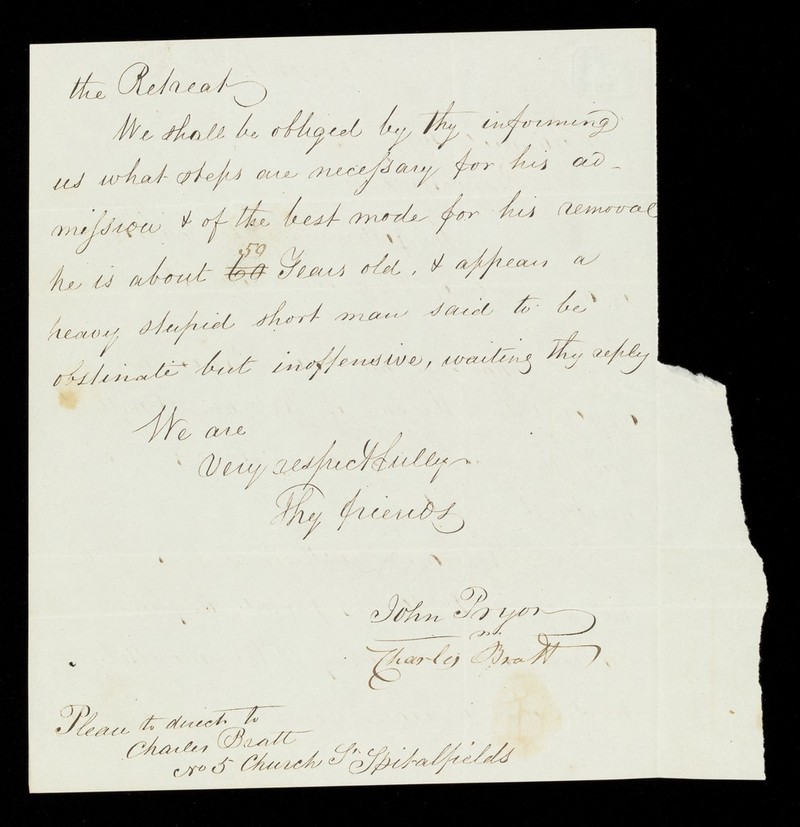 the Retreat
We shall be obliged by thy informing
us what steps are necessary for his ad-
mission & of the best mode for his removal
59
he is about 60 Years old, & appears a
heavy stupid short man said to be
obstinate but inoffensive, waiting thy reply
We are
Very respectfully
Thy friends
John Pryor
Charles Bratt
Please to direct to
Charles Bratt
No 5 Church St Spitalfields